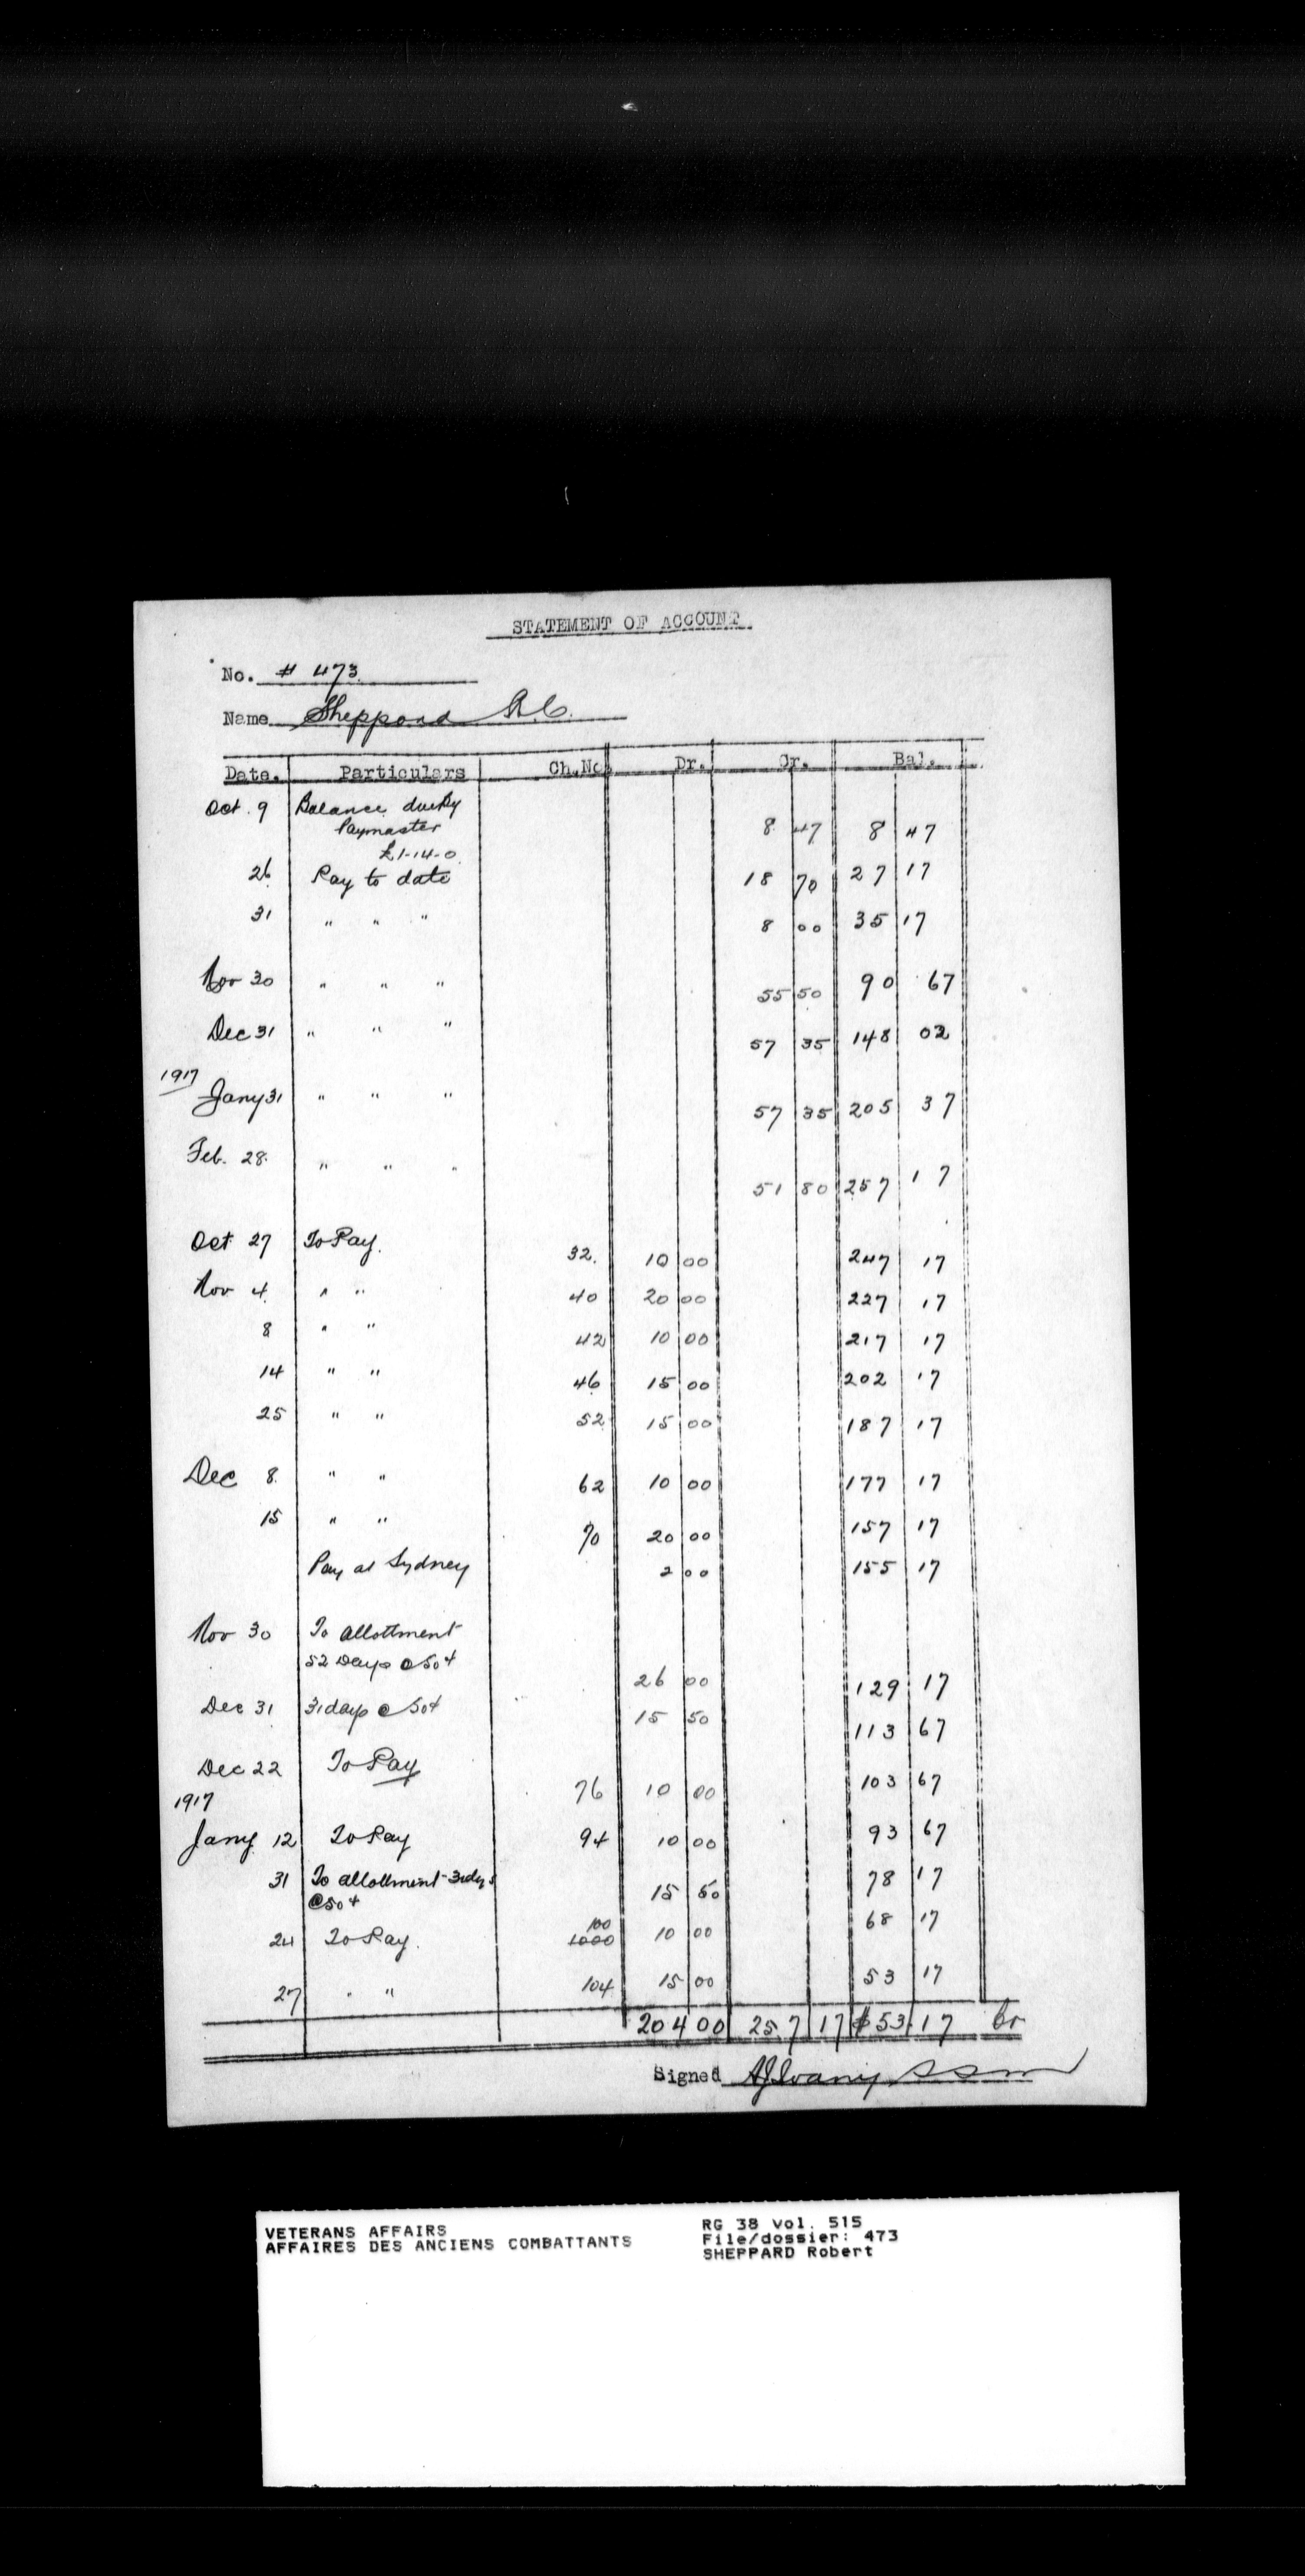 STATEMENT OF ACCOUNT
No. # 473.
Name Sheppard R.C.
Date. Particulars Ch.No. Dr. Cr. Bal.
Oct. 9 Balance due by
Paymaster 8 47 8 47
£1-14-0
26 Pay to date 18 70 27 17
31 " " " 8 00 35 17
Nov 30 " " " 55 50 90 67
Dec 31 " " " 57 35 148 02
1917
Jany 31 " " " 57 35 205 37
Feb. 28. " " " 51 80 257 17
Oct 27 To Pay. 32. 10 00 247 17
Nov 4. " " 40 20 00 227 17
8 " " 42 10 00 217 17
14 " " 46 15 00 202 17
25 " " 52 15 00 187 17
Dec 8. " " 62 10 00 177 17
15 " " 70 20 00 157 17
Pay at Sydney 2 00 155 17
Nov 30 To allotment
52 Days @ 50¢ 26 00 129 17
Dec 31 31 days @ 50¢ 15 50 113 67
Dec 22 To Pay 76 10 00 103 67
1917
Jany 12 To Pay 94 10 00 93 67
31 To allotment - 31 dys
@ 50¢ 15 50 78 17
100
24 To Pay. 1000 10 00 68 17
27 " " 104 15 00 53 17
204 00 257 17 $53.17 Cr
Signed
VETERANS AFFAIRS
AFFAIRES DES ANCIENS COMBATTANTS
RG 38 Vol. 515
File/dossier: 473
SHEPPARD Robert